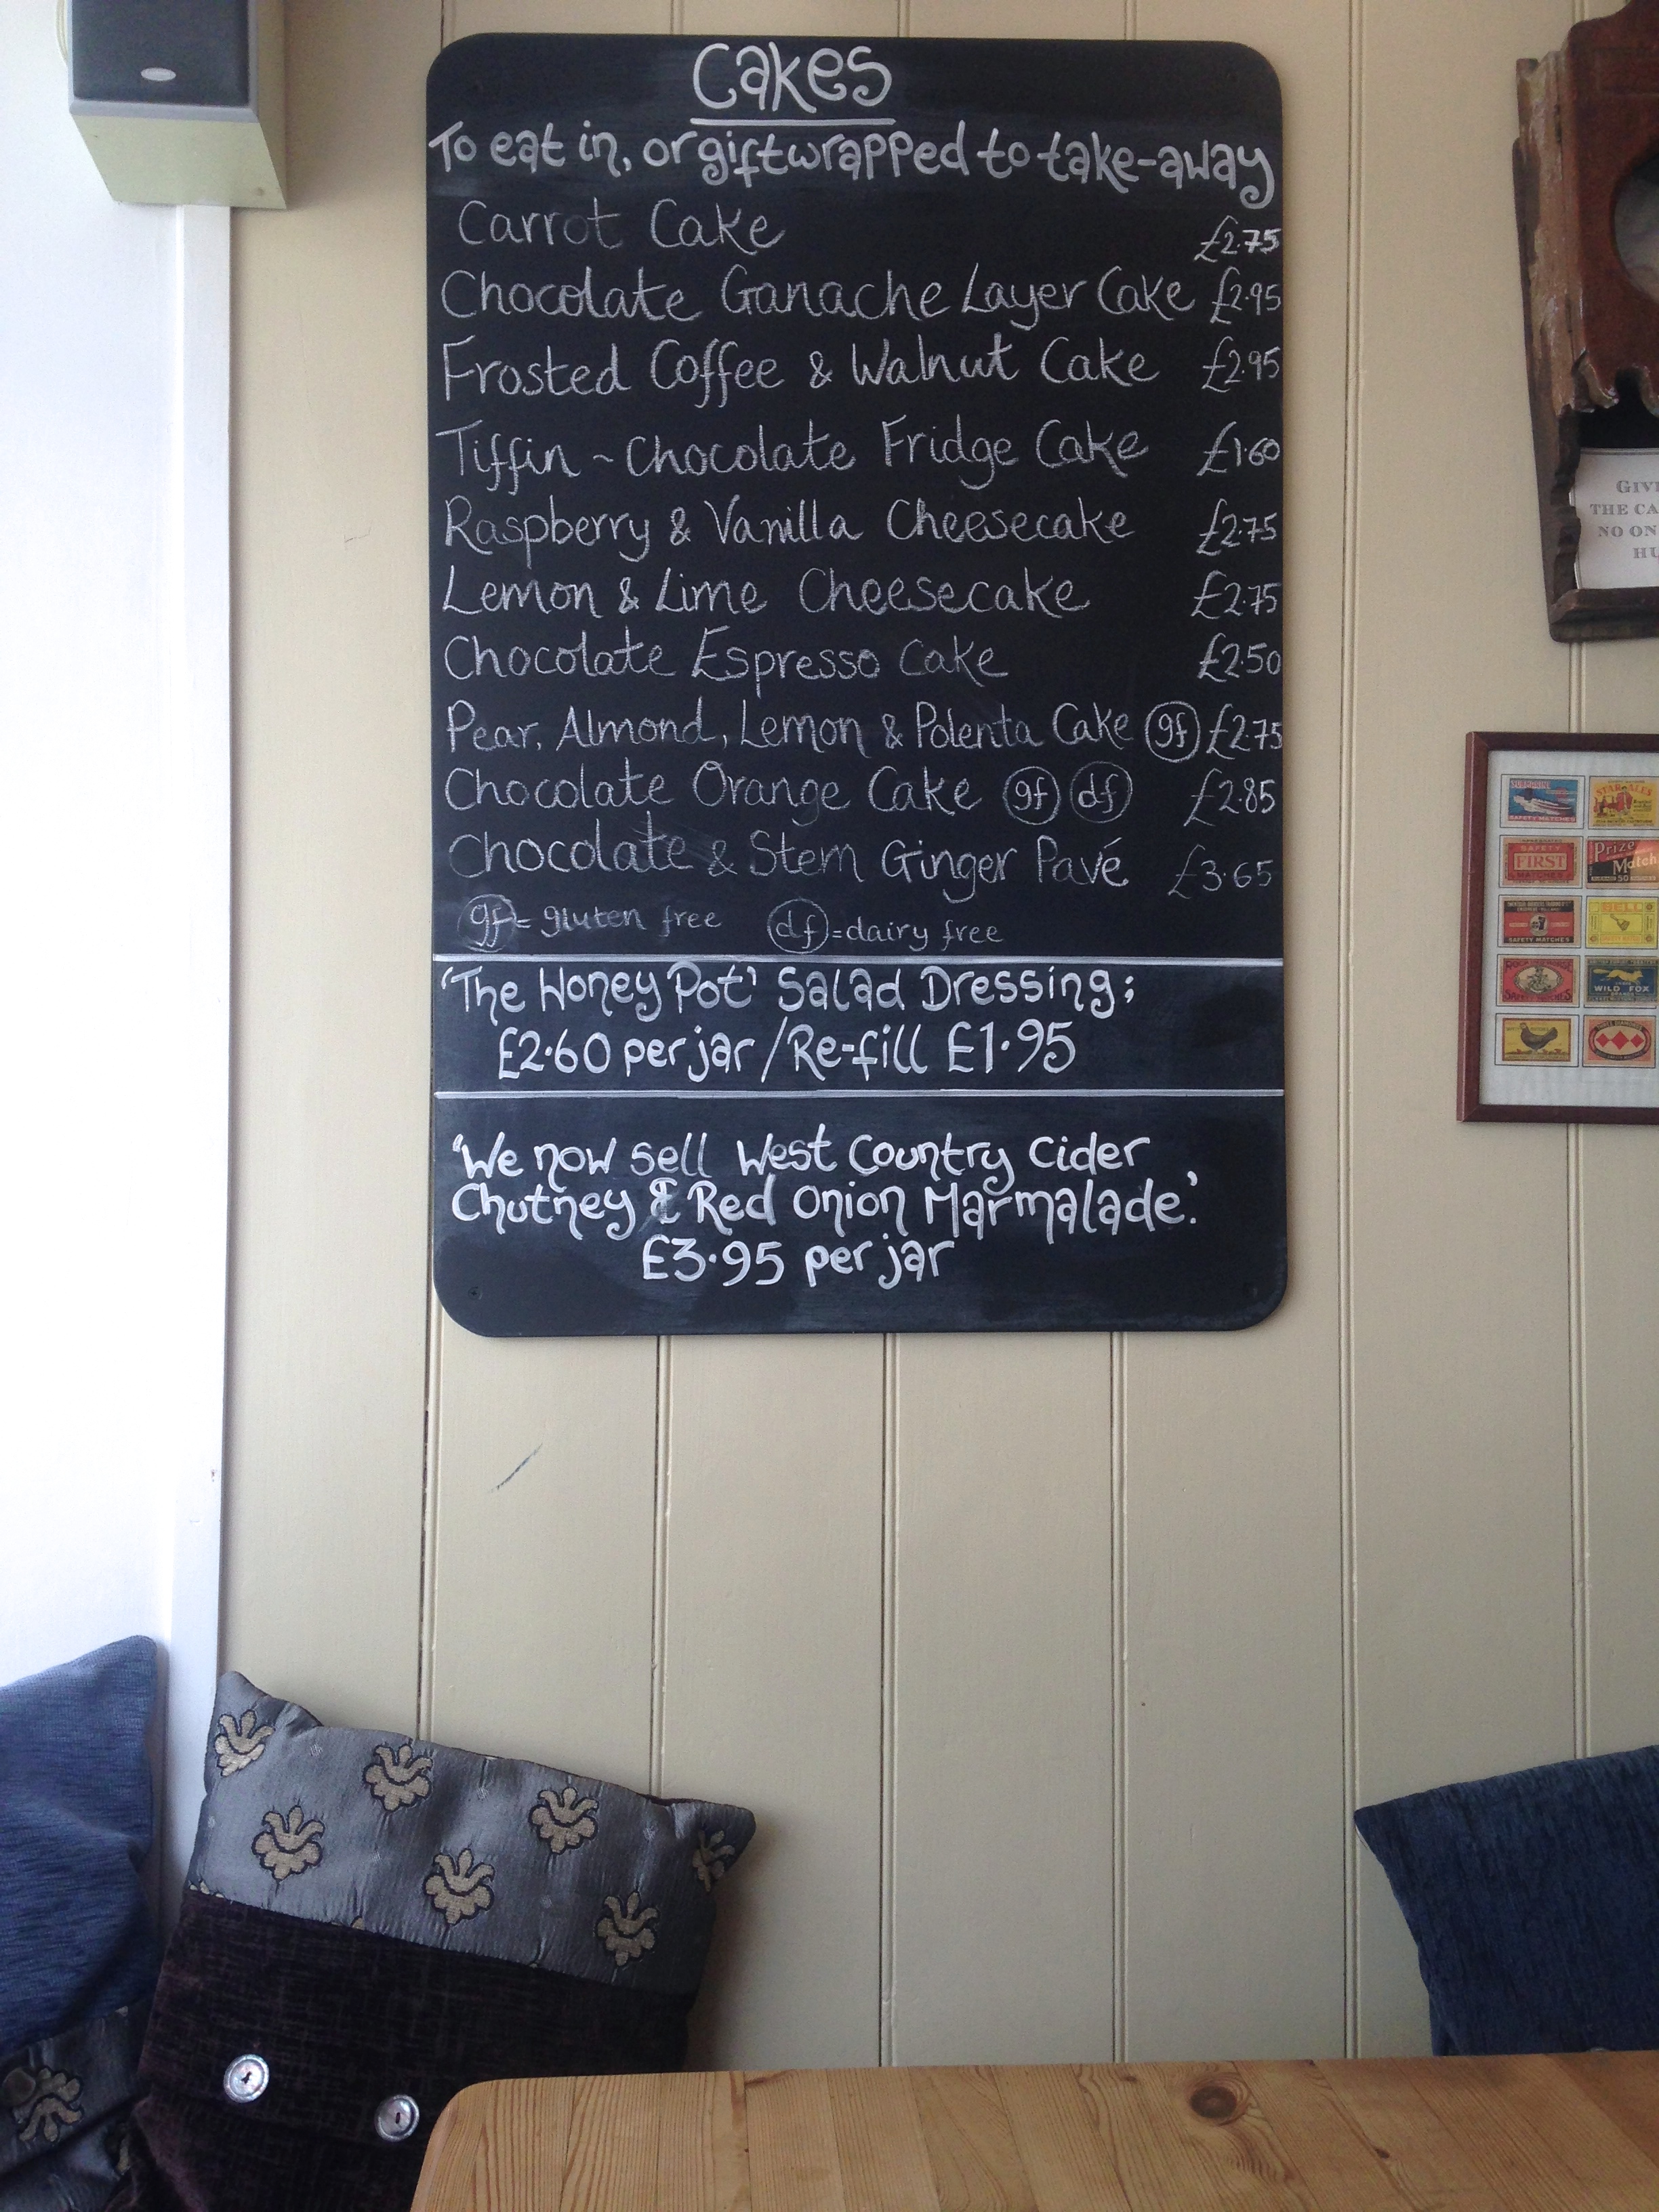 Cakes
To eat in, or giftwrapped to take-away
Carrot Cake £2.75
Chocolate Ganache Layer Cake £2.95
Frosted Coffee & Walnut Cake £2.95
Tiffin ~ Chocolate Fridge Cake £1.60
Raspberry & Vanilla Cheesecake £2.75
Lemon & Lime Cheesecake £2.75
Chocolate Espresso Cake £2.50
Pear, Almond, Lemon & Polenta Cake gf £2.75
Chocolate Orange Cake gf df £2.85
Chocolate & Stem Ginger Pavé £3.65
gf = gluten free df = dairy free
'The Honey Pot' Salad Dressing;
£2.60 per jar / Re-fill £1.95
'We now sell West Country Cider
Chutney & Red Onion Marmalade.'
£3.95 per jar
GIV
THE CA
NO ON
HU
SAFETY MATCHES
STAR ALES
SAFETY
FIRST
MATCHES
Prize
Match
50
SAFETY MATCHES
BELL
WILD FOX